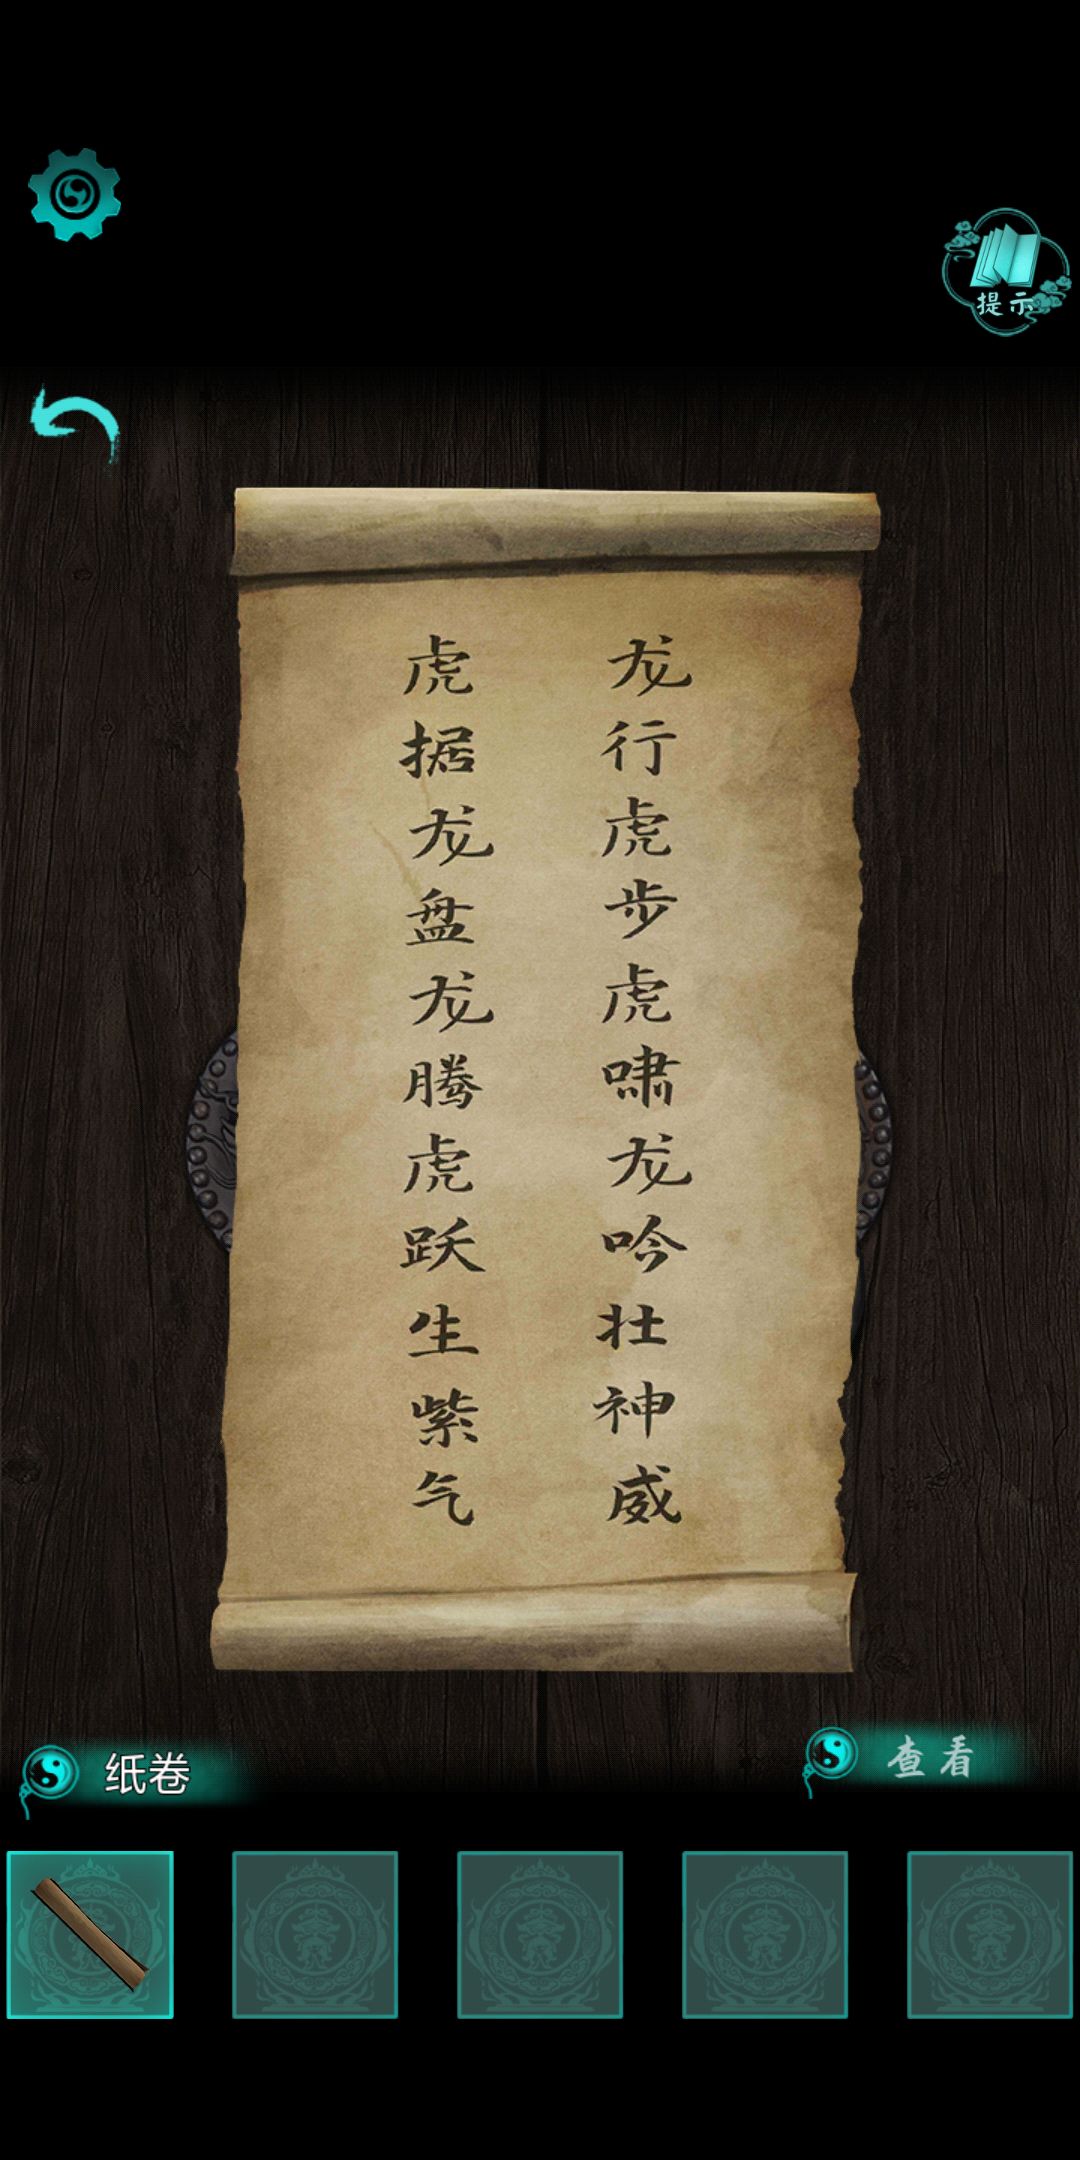 提示
龙行虎步虎啸龙吟壮神威
虎据龙盘龙腾虎跃生紫气
纸卷
查看